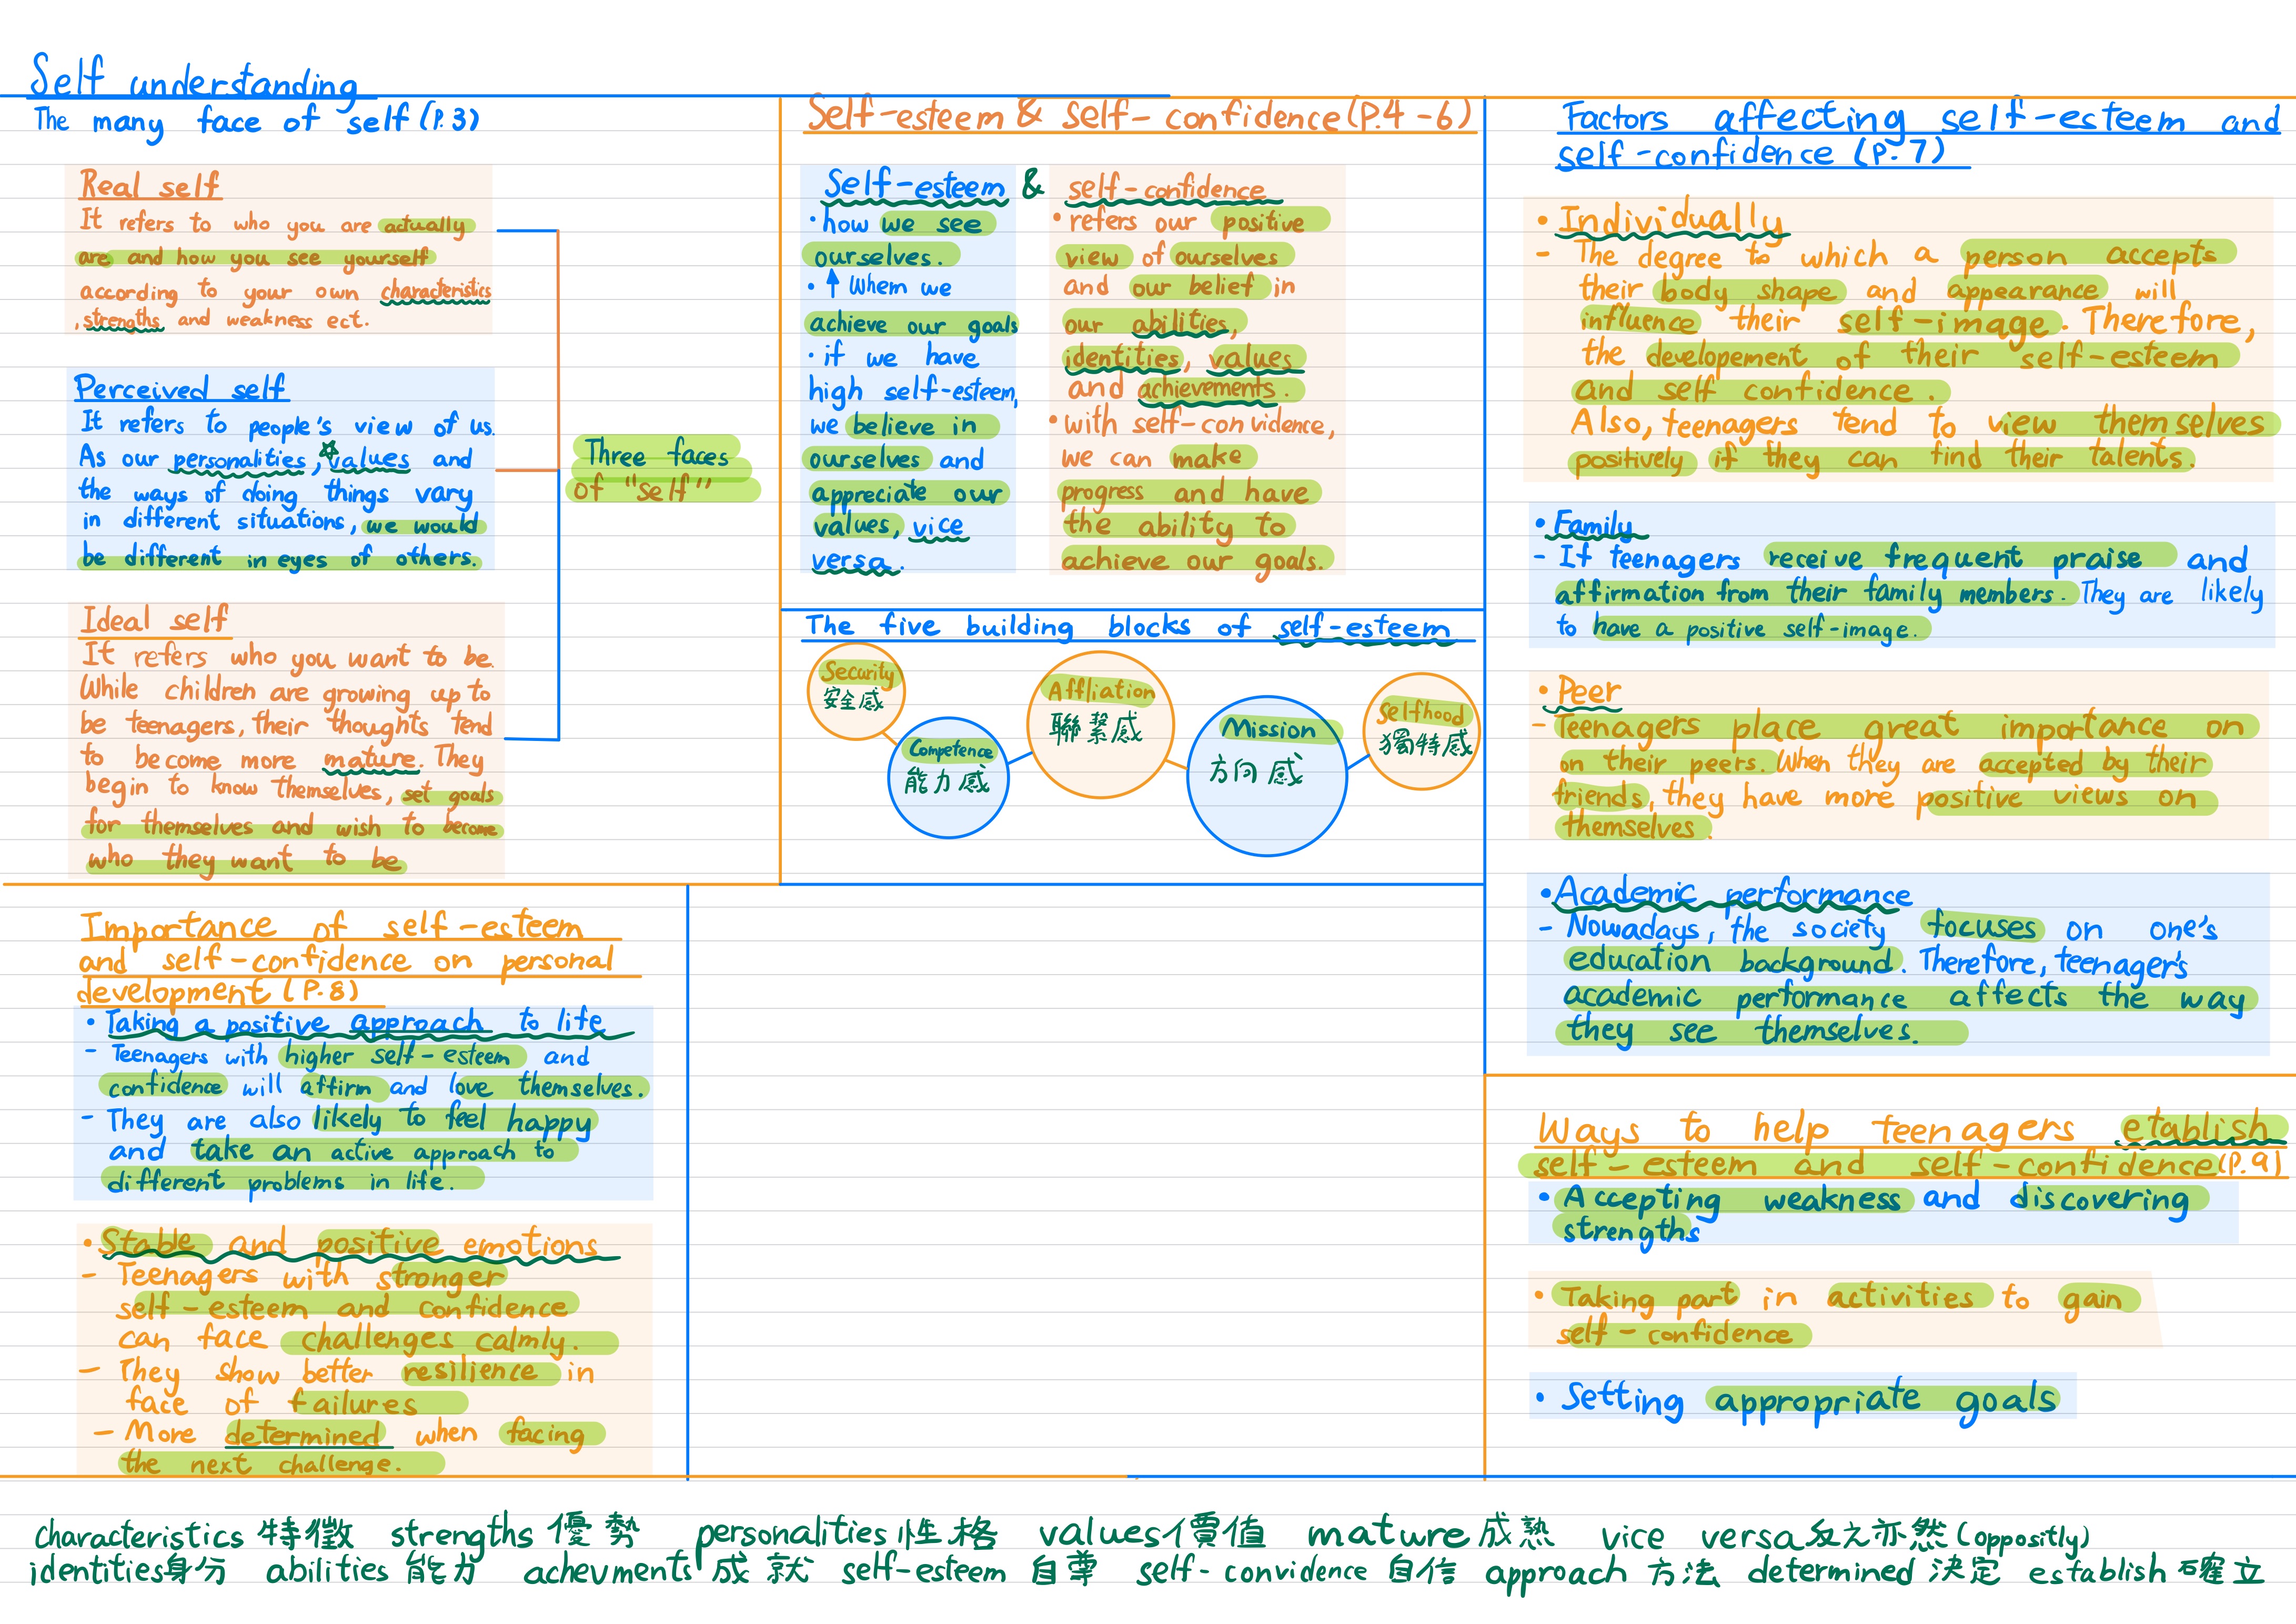 Self understanding
The many face of self (P.3)
Real self
It refers to who you are actually
are and how you see yourself
according to your own characteristics
, strengths and weakness ect.
Perceived self
It refers to people's view of us.
As our personalities, values and
the ways of doing things vary
in different situations, we would
be different in eyes of others.
Ideal self
It refers who you want to be.
While children are growing up to
be teenagers, their thoughts tend
to become more mature. They
begin to know themselves, set goals
for themselves and wish to become
who they want to be
Three faces
of "self"
Self-esteem & self-confidence (P.4-6)
Self-esteem &
• how we see
ourselves.
• ↑ Whem we
achieve our goals
• if we have
high self-esteem,
we believe in
ourselves and
appreciate our
values, vice
versa.
self-confidence
• refers our positive
view of ourselves
and our belief in
our abilities,
identities, values
and achievements.
• with self-convidence,
we can make
progress and have
the ability to
achieve our goals.
The five building blocks of self-esteem
Security
安全感
Competence
能力感
Affliation
聯繫感
Mission
方向感
Selfhood
獨特感
Factors affecting self-esteem and
self-confidence (P.7)
• Individually
- The degree to which a person accepts
their body shape and appearance will
influence their self-image. Therefore,
the developement of their self-esteem
and self confidence.
Also, teenagers tend to view themselves
positively if they can find their talents.
• Family
- If teenagers receive frequent praise and
affirmation from their family members. They are likely
to have a positive self-image.
• Peer
- Teenagers place great importance on
on their peers. When they are accepted by their
friends, they have more positive views on
themselves.
• Academic performance
- Nowadays, the society focuses on one's
education background. Therefore, teenager's
academic performance affects the way
they see themselves.
Importance of self-esteem
and self-confidence on personal
development (P.8)
• Taking a positive approach to life
- Teenagers with higher self-esteem and
confidence will affirm and love themselves.
- They are also likely to feel happy
and take an active approach to
different problems in life.
• Stable and positive emotions
- Teenagers with stronger
self-esteem and confidence
can face challenges calmly.
- They show better resilience in
face of failures
- More determined when facing
the next challenge.
Ways to help teenagers etablish
self-esteem and self-confidence (P.9)
• Accepting weakness and discovering
strengths
• Taking part in activities to gain
self-confidence
• Setting appropriate goals
characteristics 特徵 strengths 優勢 personalities 性格 values 價值 mature 成熟 vice versa 反之亦然 (oppositly)
identities 身分 abilities 能力 achevments 成就 self-esteem 自尊 self-convidence 自信 approach 方法 determined 決定 establish 確立